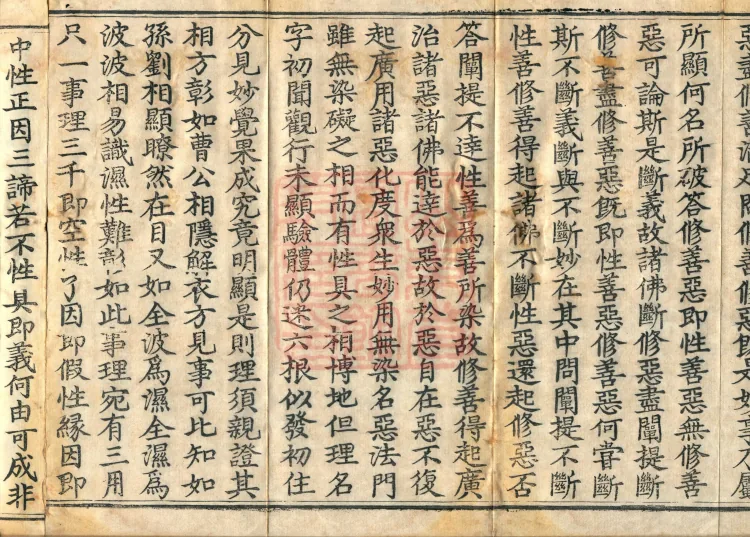 所顯何名所破答修善惡即性善惡無修善
惡可論斯是斷義故諸佛斷修惡盡闡提斷
修善盡修善惡既即性善惡修善惡何甞斷
斯不斷義斷與不斷妙在其中問闡提不斷
性善修善得起諸佛不斷性惡還起修惡否
答闡提不達性善為善所染故修善得起廣
治諸惡諸佛能達於惡故於惡自在惡不復
起廣用諸惡化度衆生妙用無染名惡法門
雖無染礙之相而有性具之相博地但理名
字初聞觀行未顯驗體仍迷六根似發初住
分見妙覺果成究竟明顯是則理須親證其
相方彰如曹公相隱解衣方見事可比知如
孫劉相顯瞭然在目又如全波為濕全濕為
波波相易識濕性難彰如此事理宛有三用
只一事理三千即空性了因即假性緣因即
中性正因三諦若不性具即義何由可成非